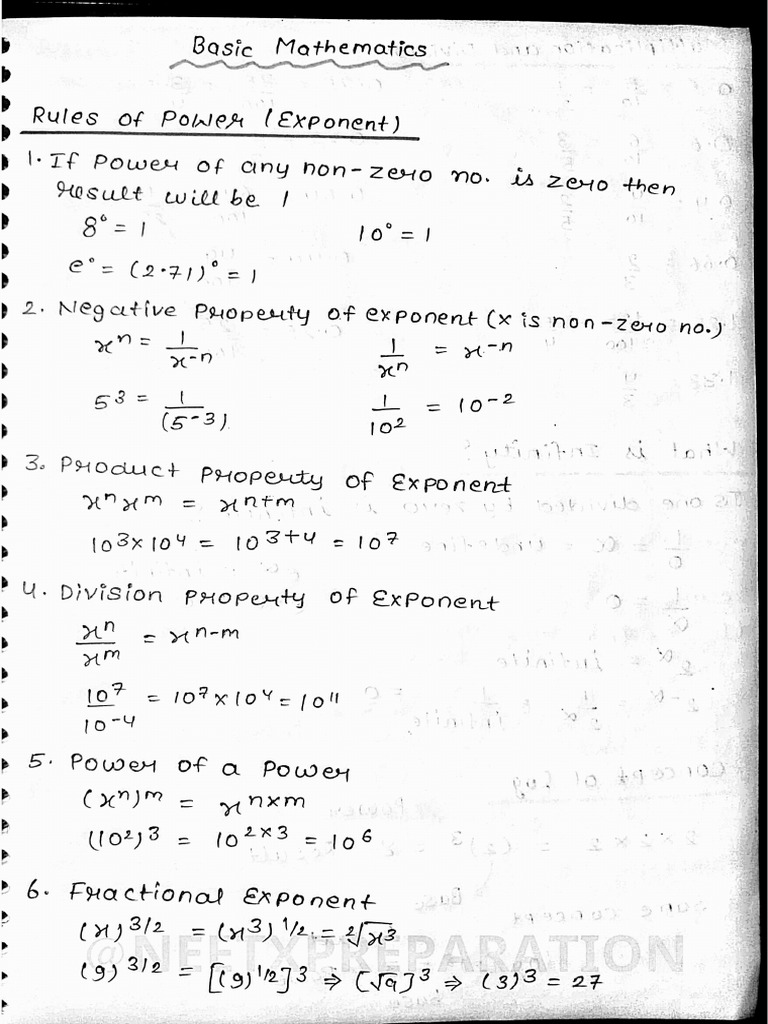 Basic Mathematics
Rules of Power (Exponent)
1. If Power of any non-zero no. is zero then
result will be 1
8° = 1 10° = 1
e° = (2.71)° = 1
2. Negative Property of exponent (x is non-zero no.)
xⁿ = 1/x⁻ⁿ 1/xⁿ = x⁻ⁿ
5³ = 1/(5⁻³) 1/10² = 10⁻²
3. Product Property of Exponent
xⁿxᵐ = xⁿ⁺ᵐ
10³×10⁴ = 10³⁺⁴ = 10⁷
4. Division Property of Exponent
xⁿ/xᵐ = xⁿ⁻ᵐ
10⁷/10⁻⁴ = 10⁷×10⁴ = 10¹¹
5. Power of a Power
(xⁿ)ᵐ = xⁿˣᵐ
(10²)³ = 10²ˣ³ = 10⁶
6. Fractional Exponent
(x)^3/2 = (x³)^1/2 = ²√x³
@NEETXPREPARATION
(9)^3/2 = [(9)^1/2]³ ⇒ (√9]³ ⇒ (3)³ = 27